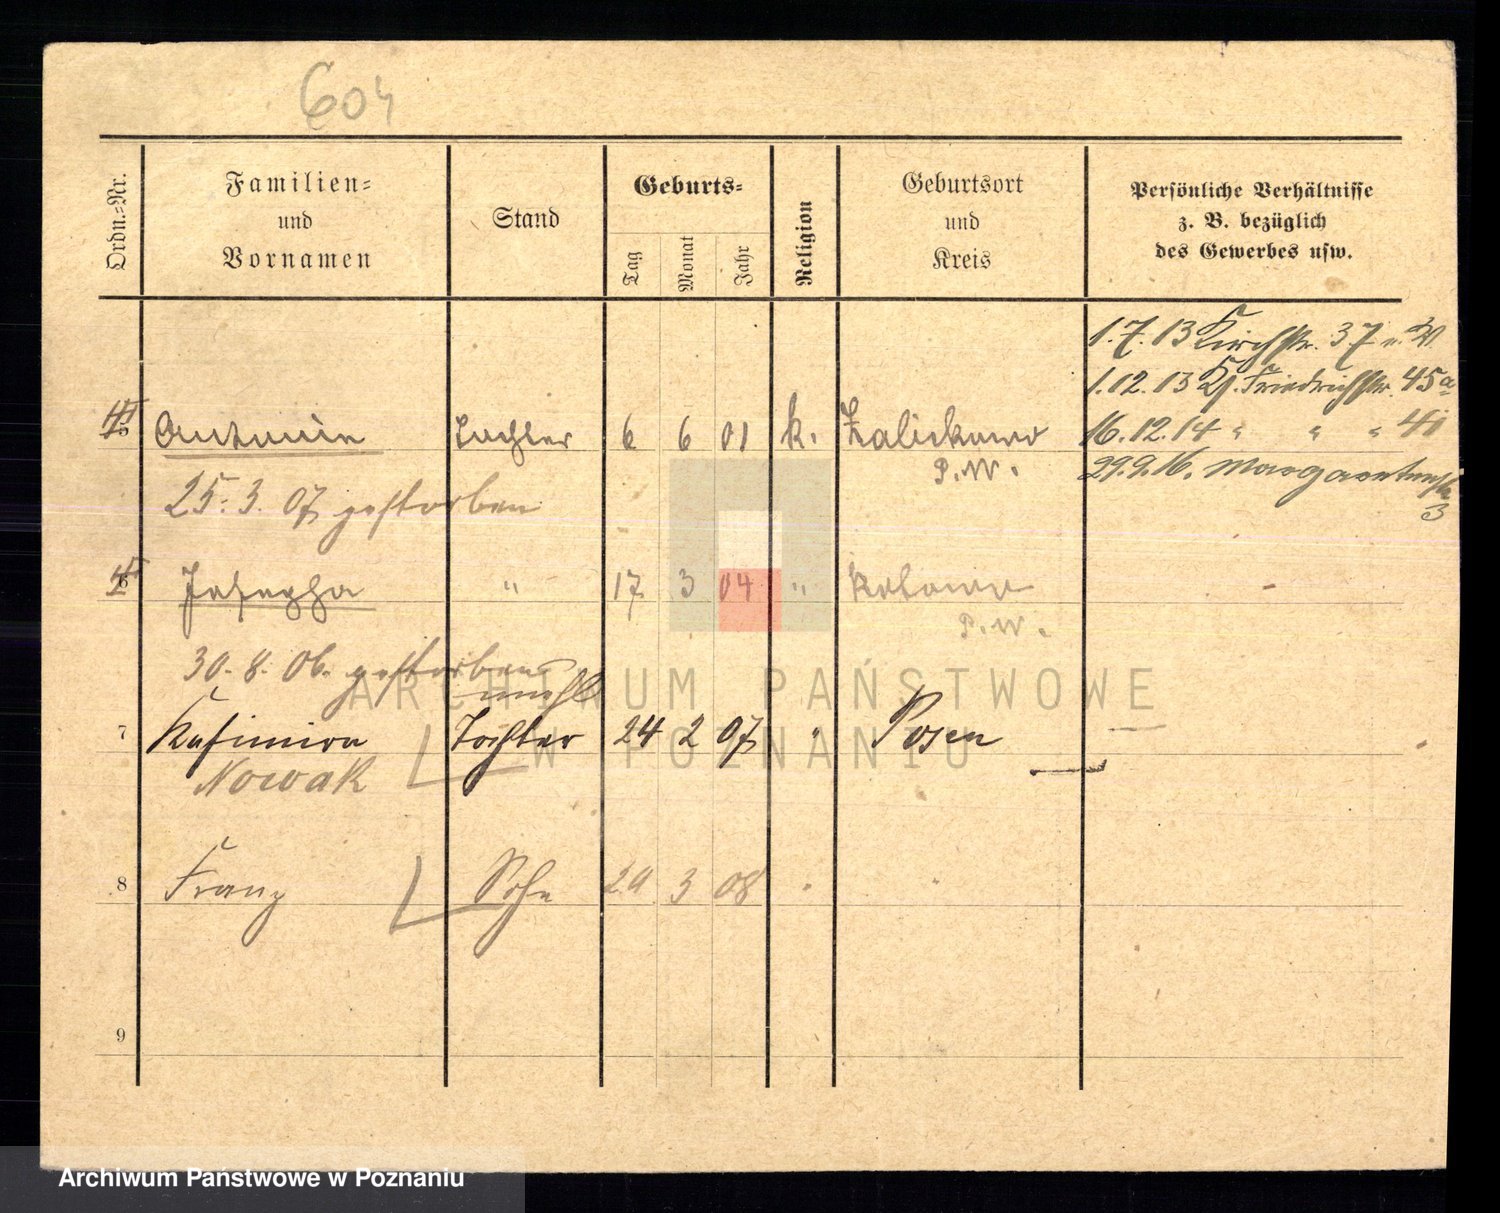 604
Ordn.-Nr.
Familien-
und
Vornamen
Stand
Geburts-
Tag
Monat
Jahr
Religion
Geburtsort
und
Kreis
Persönliche Verhältnisse
z. B. bezüglich
des Gewerbes usw.
1.7.13 Kirchstr. 37 v. W.
1.12.13 Kf. Friedrichstr. 45a
Antonie Tochter 6 6 01 k. Zalickowo 16.12.14 " " " 41
P.W. 29.9.16. Margaretenstr.
3
25.3.07 gestorben
6 Josepha " 17 3 04 "
P.W.
30.8.06. gestorben
unehl
7 Kasimira Tochter 24 2 07 " Posen
Nowak
8 Franz Sohn 29 3 08 " "
9
ARCHIWUM PAŃSTWOWE
W POZNANIU
Archiwum Państwowe w Poznaniu